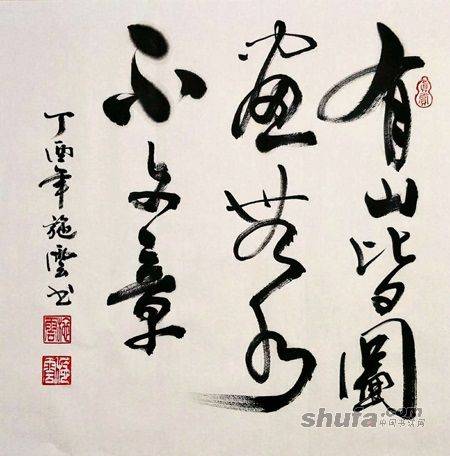 有山皆圖
畫無水
不文章
丁酉年施雲书
shufa.com
中国书法网